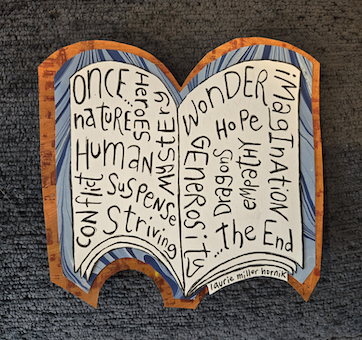 ONCE...
natUREs
HEROES
MYSTERY
HUMAN
conflict
SUSPENSE
Striving
WONDER
HOPE
iMagINATION
GENEROSITY
DRagons
empathy
...the End
laurie miller hornik